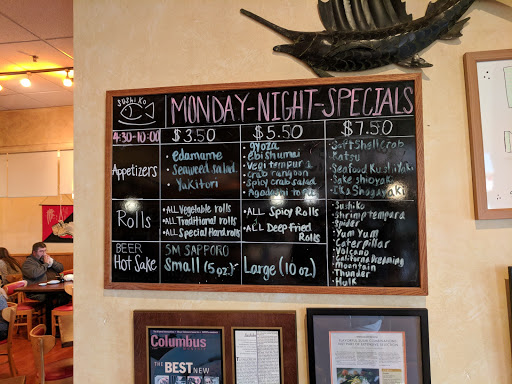 Sushi Ko
MONDAY-NIGHT-SPECIALS
4:30-10:00
$3.50
$5.50
$7.50
Appetizers
• edamame
• Seaweed salad
• Yakitori
gyoza
ebi shumai
vegi tempura
crab rangoon
Spicy crab salad
Agadashi tofu
Soft Shell crab
Katsu
Seafood Kushiyaki
Sake shioyaki
Ika Shogayaki
Rolls
• ALL Vegetable rolls
• ALL Traditional rolls
• ALL Special Hand rolls
• ALL Spicy Rolls
• ALL Deep Fried
Rolls
Sushiko
Shrimp tempura
Spider
Yum Yum
Caterpillar
Volcano
California Dreaming
Mountain
Thunder
Hulk
BEER
Hot Sake
SM SAPPORO
Small (5 oz.)
Large (10 oz.)
Columbus
The BEST NEW